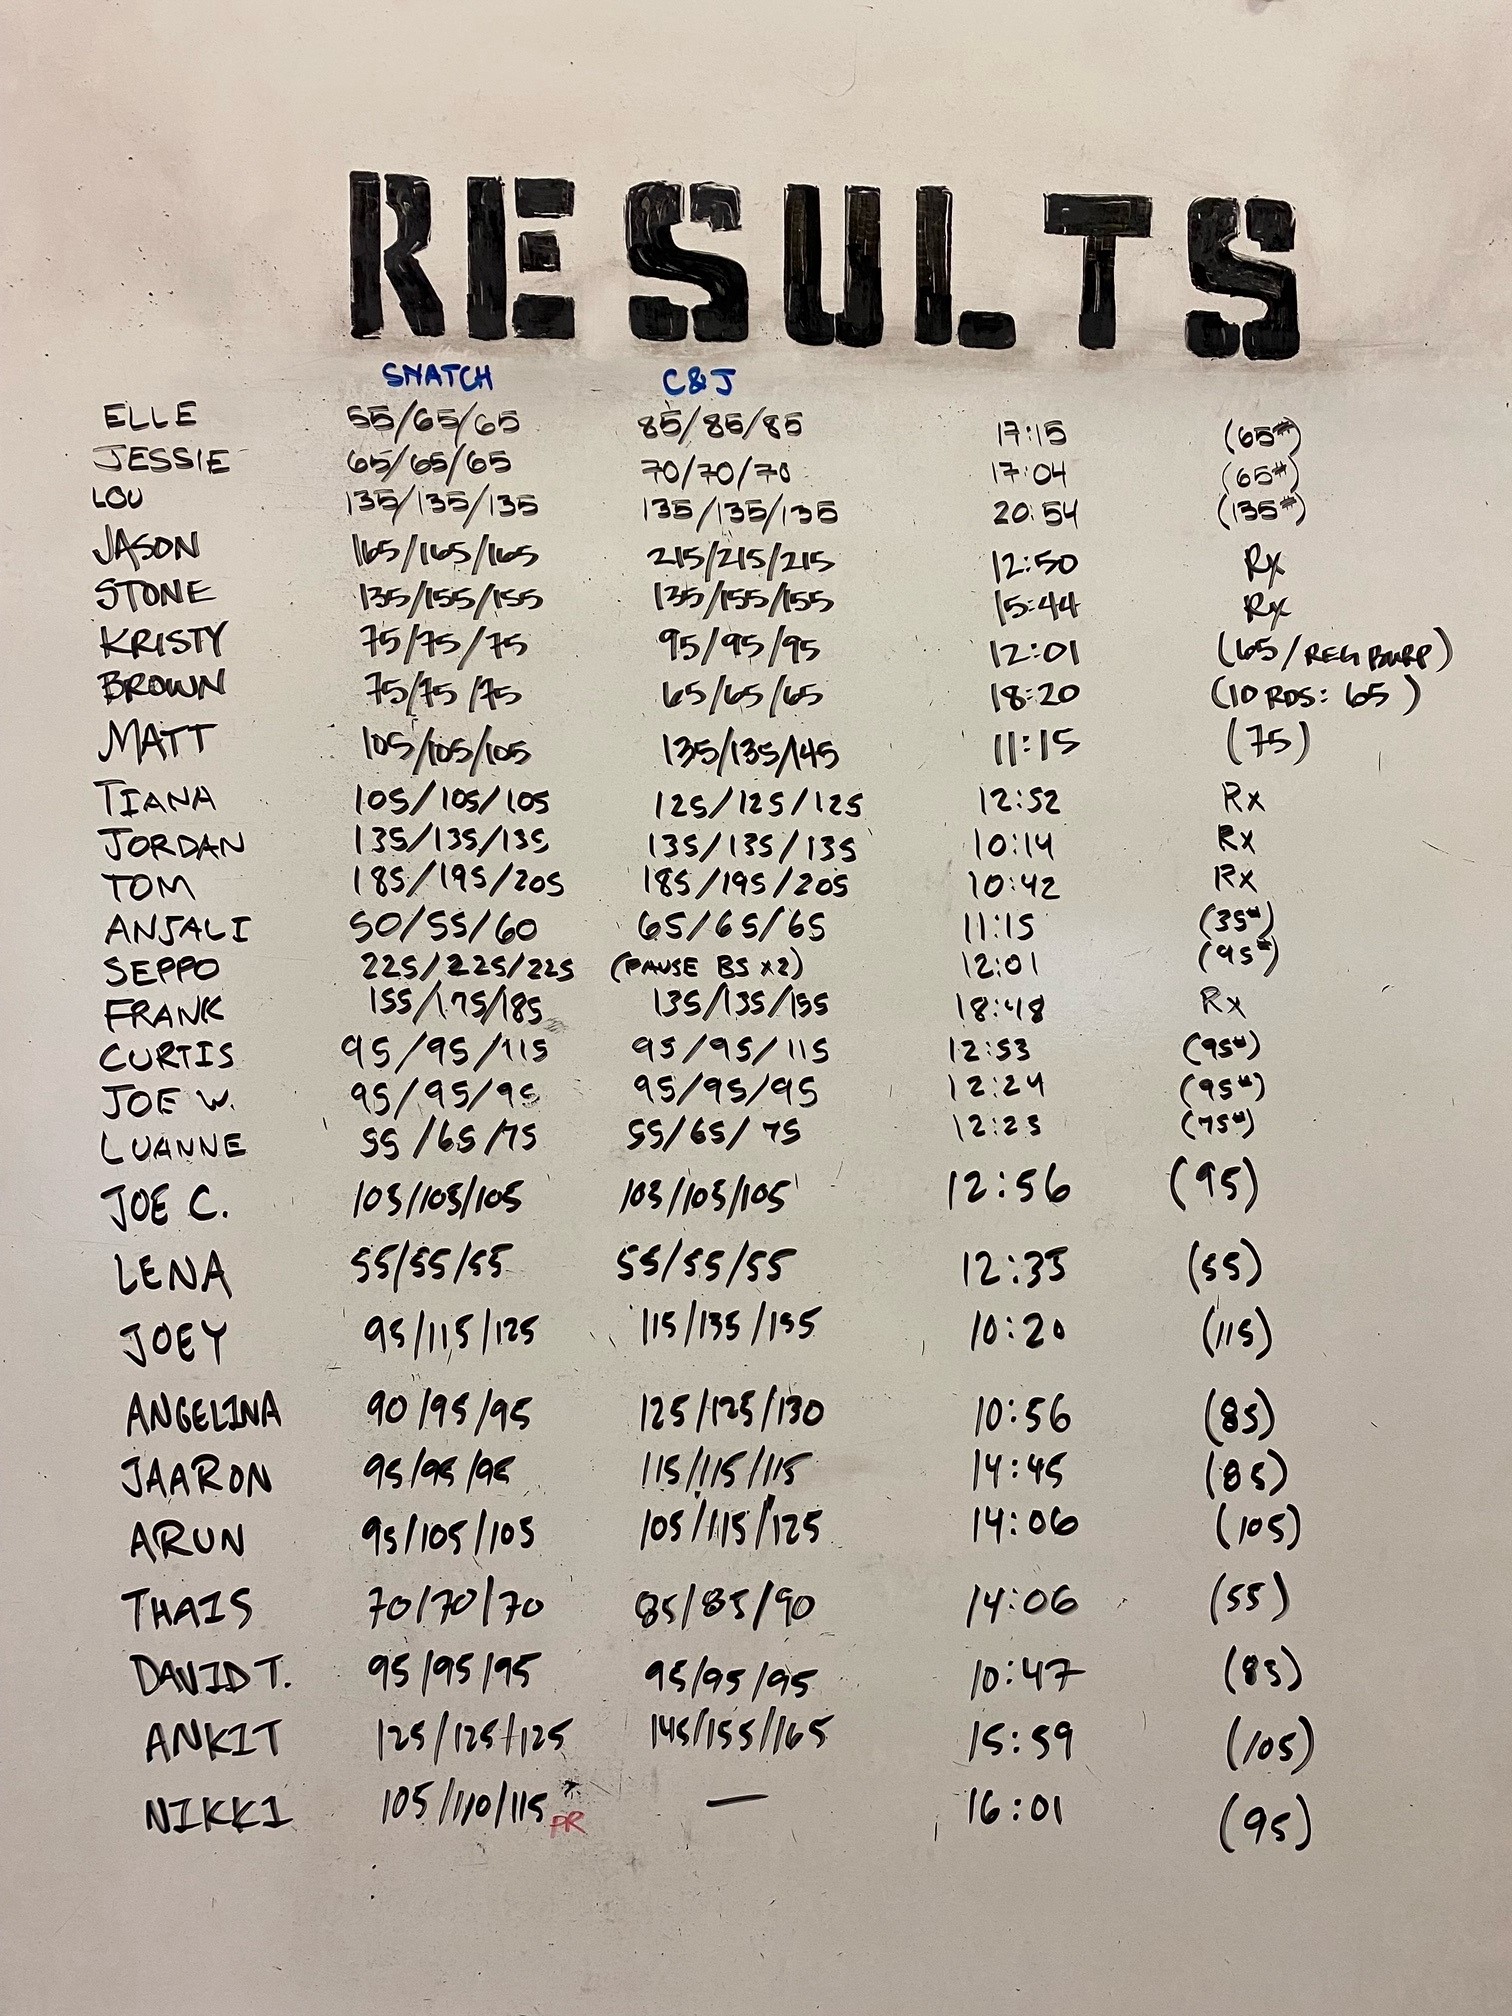 RESULTS
SNATCH C&J
ELLE 55/65/65 85/85/85 17:15 (65#)
JESSIE 65/65/65 70/70/70 17:04 (65#)
LOU 135/135/135 135/135/135 20:54 (135#)
JASON 165/165/165 215/215/215 12:50 Rx
STONE 135/155/155 135/155/155 15:44 Rx
KRISTY 75/75/75 95/95/95 12:01 (65/REG BURP)
BROWN 75/75/75 65/65/65 18:20 (10 RDS: 65)
MATT 105/105/105 135/135/145 11:15 (75)
TIANA 105/105/105 125/125/125 12:52 Rx
JORDAN 135/135/135 135/135/135 10:14 Rx
TOM 185/195/205 185/195/205 10:42 Rx
ANJALI 50/55/60 65/65/65 11:15 (35#)
SEPPO 225/225/225 (PAUSE BS x2) 12:01 (95#)
FRANK 155/175/185 135/135/135 18:48 Rx
CURTIS 95/95/115 95/95/115 12:53 (95#)
JOE W. 95/95/95 95/95/95 12:24 (95#)
LUANNE 55/65/75 55/65/75 12:23 (75#)
JOE C. 105/105/105 105/105/105 12:56 (95)
LENA 55/55/55 55/55/55 12:33 (55)
JOEY 95/115/125 115/135/155 10:20 (115)
ANGELINA 90/95/95 125/125/130 10:56 (85)
JAARON 95/95/95 115/115/115 14:45 (85)
ARUN 95/105/105 105/115/125 14:06 (105)
THAIS 70/70/70 85/85/90 14:06 (55)
DAVID T. 95/95/95 95/95/95 10:47 (85)
ANKIT 125/125/125 145/155/165 15:59 (105)
NIKKI 105/110/115* PR — 16:01 (95)